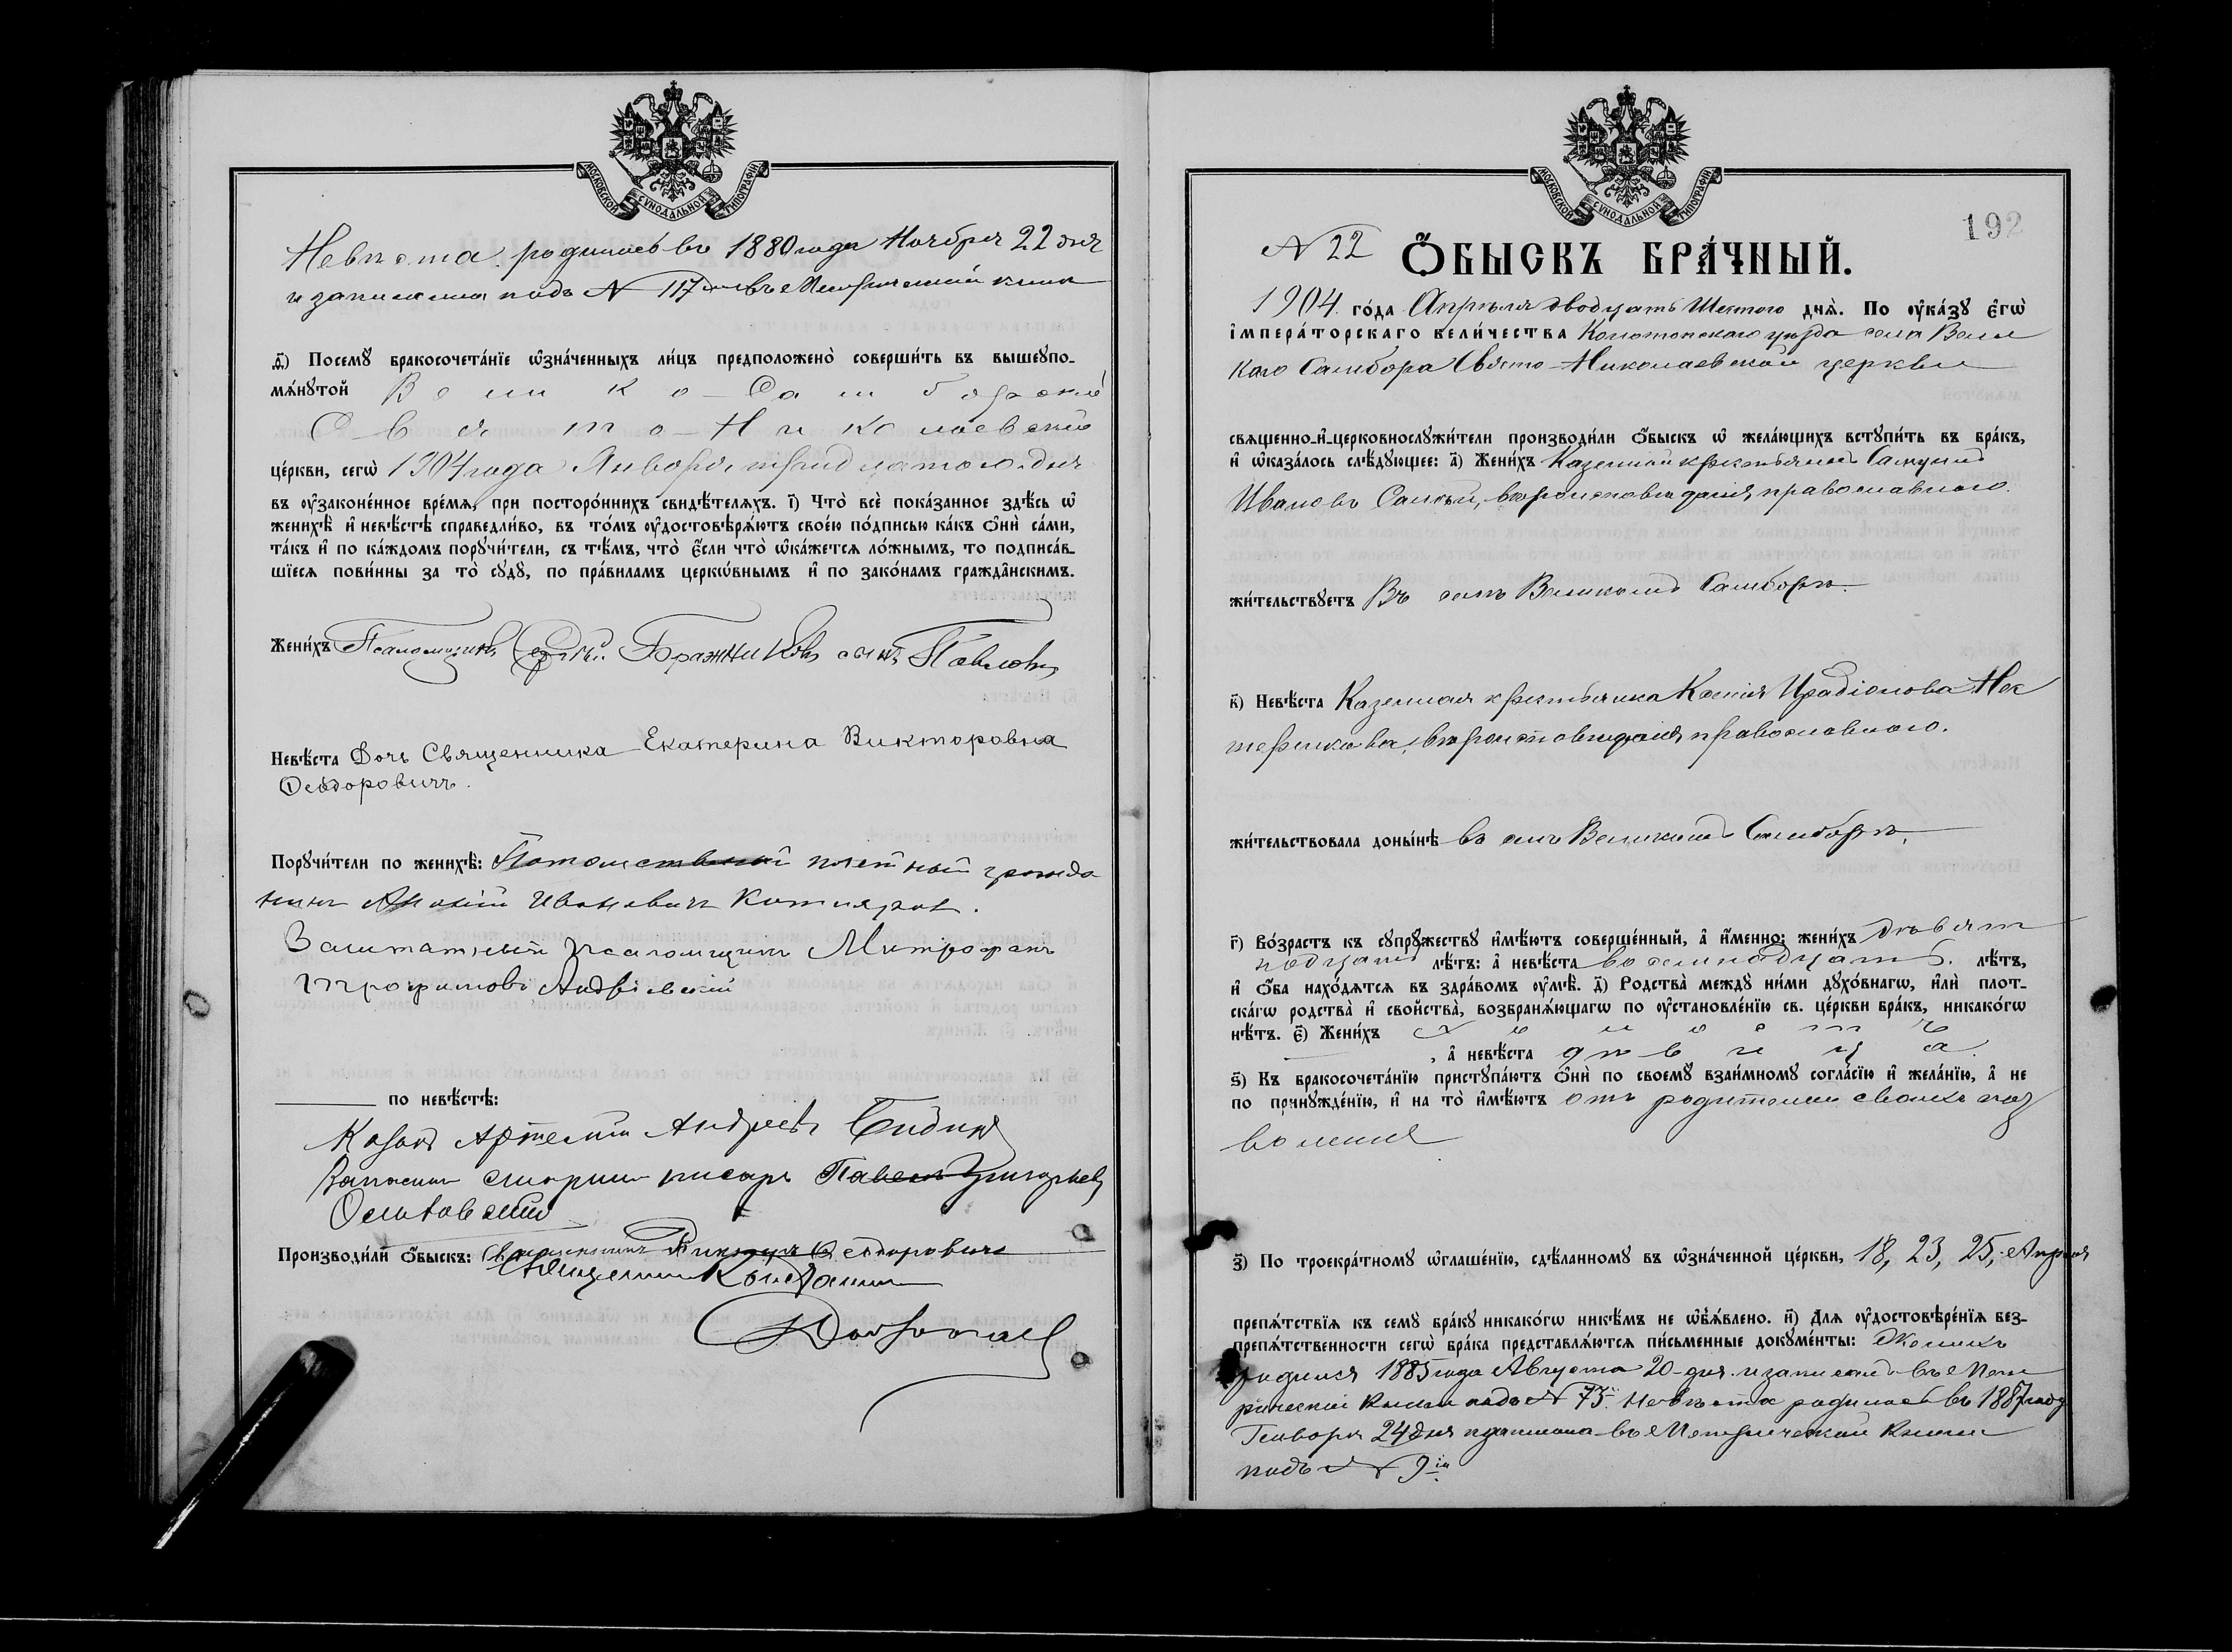 МОСКОВСКОЙ СѴНОДАЛЬНОЙ ТИПОГРАФІИ
Невѣста родилась въ 1880 года Ноября 22 дня
и записана подъ № 117 въ Метрической книгѣ
д҃і) Посемꙋ̀ бракосочета́нїе ѡ҆зна́ченныхъ ли́цъ предположено̀ соверши́ть въ вышеꙋпо-
мѧ́нꙋтой Велико-Самборской
Свято-Николаевской
це́ркви, сегѡ̀ 1904 года Января тридцатого дня
въ ᲂу҆законе́нное вре́мѧ, при посторо́ннихъ свидѣ́телѧхъ. і҃) Что̀ всѐ пока́занное здѣ́сь ѡ҆
женихѣ̀ и҆ невѣ́стѣ справедли́во, въ то́мъ ᲂу҆достовѣрѧ́ютъ свое́ю по́дписью ка́къ ѻ҆нѝ са́ми,
та́къ и҆ по ка́ждомъ порꙋчи́тели, съ тѣ́мъ, что̀ є҆́сли что̀ ѡ҆ка́жетсѧ ло́жнымъ, то подписа́в-
шїесѧ пови́нны за то̀ сꙋдꙋ̀, по пра́виламъ церко́внымъ и҆ по зако́намъ гражда́нскимъ.
Жени́хъ Псаломщикъ Сергѣй Бражниковъ сынъ Павловъ
Невѣ́ста Дочь Священника Екатерина Викторовна
Ѳеодоровичъ.
Порꙋчи́тели по женихѣ̀: Потомственный почетный гражда
нинъ Иванович Котляров.
Заштатный псаломщикъ Митрофанъ
Трофимовъ Андріевскій
по невѣ́стѣ:
Козакъ Артемій Андреевъ
Запасный старшій писарь Павелъ Григорьевъ
Производи́ли ѻ҆́быскъ: Священникъ Викторъ Ѳеодоровичъ
Священникъ
МОСКОВСКОЙ СѴНОДАЛЬНОЙ ТИПОГРАФІИ
192
№ 22 Ѻ҆́БЫСКЪ БРА́ЧНЫЙ.
1904 го́да Апрѣля двадцать Шестого днѧ̀. По ᲂу҆ка́зꙋ є҆гѡ̀
і҆мпера́торскаго вели́чества Конотопскаго уѣзда села Вели
каго Самбора Свято-Николаевской церкви
свѧщенно-и҆-церковнослꙋжи́тели производи́ли ѻ҆́быскъ ѡ҆ жела́ющихъ встꙋпи́ть въ бра́къ,
и҆ ѡ҆каза́лось слѣ́дꙋющее: а҃) Жени́хъ Казенный крестьянинъ Самуилъ
Ивановъ вѣроисповѣданія православного.
жи́тельствꙋетъ Въ селѣ Великомъ Самборѣ.
в҃) Невѣ́ста Казенная крестьянка Ксенія Иродіонова Нес
теренкова, вѣроисповѣданія православного.
жи́тельствовала доны́нѣ въ селѣ Великомъ Самборѣ.
г҃) Во́зрастъ къ сꙋпрꙋ́жествꙋ и҆мѣ́ютъ соверше́нный, а҆ и҆́менно: жени́хъ девят
надцать лѣ́тъ: а҆ невѣ́ста восемнадцать. лѣ́тъ,
и҆ ѻ҆́ба нахо́дѧтсѧ въ здра́вомъ ᲂу҆мѣ̀. д҃) Родства̀ междꙋ̀ ни́ми дꙋхо́внагѡ, и҆лѝ плот-
ска́гѡ родства̀ и҆ свойства̀, возбранѧ́ющагѡ по ᲂу҆становле́нїю св. це́ркви бра́къ, никако́гѡ
нѣ́тъ. є҃) Жени́хъ холостъ
, а҆ невѣ́ста дѣвица.
ѕ҃) Къ бракосочета́нїю пристꙋпа́ютъ ѻ҆нѝ по своемꙋ̀ взаи́мномꙋ согла́сїю и҆ жела́нїю, а҆ не
по принꙋжде́нїю, и҆ на то̀ и҆мѣ́ютъ отъ родителей своихъ поз
воленія
з҃) По троекра́тномꙋ ѡ҆глаше́нїю, сдѣ́ланномꙋ въ ѡ҆зна́ченной це́ркви, 18, 23, 25, Апреля
препѧ́тствїѧ къ семꙋ̀ бра́кꙋ никако́гѡ никѣ́мъ не ѡ҆б̾ѧ́влено. и҃) Для ᲂу҆достовѣре́нїѧ без-
препѧ́тственности сегѡ̀ бра́ка представлѧ́ютсѧ пи́сьменные докꙋме́нты: Женихъ
родился 1885 года Августа 20 дня и записанъ въ Мет
рической книги подъ № 73. Невѣста родилась въ 1887 году
Генваря 24 дня и записана въ Метрической Книги
подъ № 9